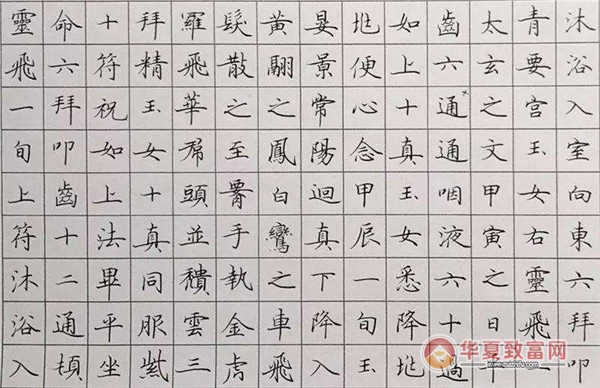 沐浴入室向東六拜叩
青要宫玉女右靈飛
太玄之文甲寅之日平
齒六通通咽液六十過
如上十真玉女悉降
便心念甲辰一旬玉
晏景常陽迴真下降入
黃翮之鳳白鸞之車飛
髮散之至署手執金虎
羅飛華帬頭並穨雲三
拜精玉女十真同服紫
十符祝如上法畢平坐
命六拜叩齒十二通頓
靈飛一旬上符沐浴入
华夏致富网